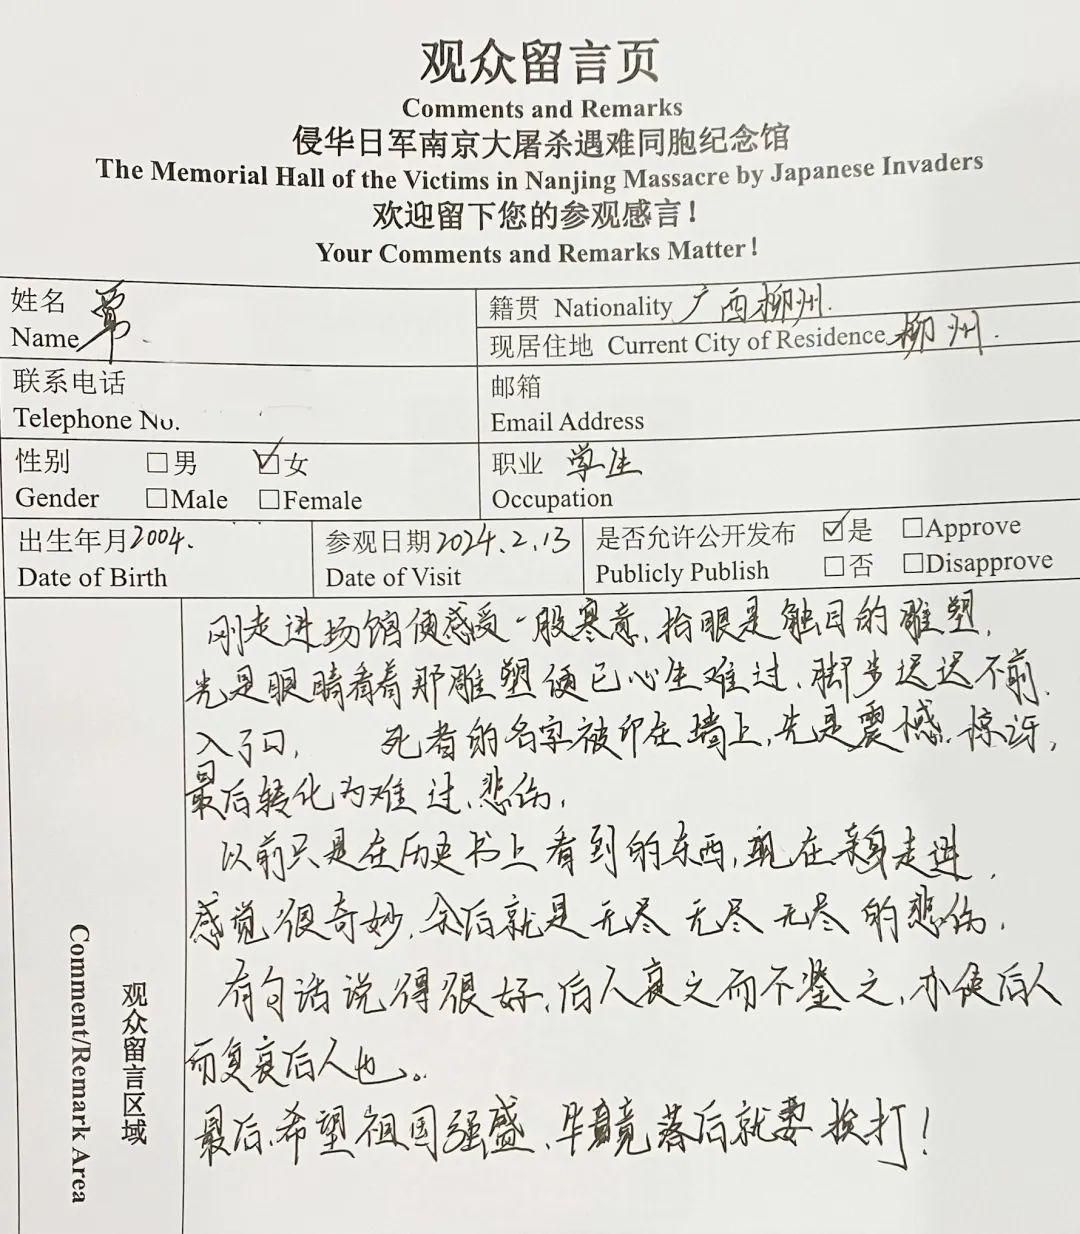 观众留言页
Comments and Remarks
侵华日军南京大屠杀遇难同胞纪念馆
The Memorial Hall of the Victims in Nanjing Massacre by Japanese Invaders
欢迎留下您的参观感言！
Your Comments and Remarks Matter！
姓名
Name
籍贯 Nationality 广西柳州.
现居住地 Current City of Residence 柳州.
联系电话
Telephone No.
邮箱
Email Address
性别 □男 ☑女
Gender □Male □Female
职业 学生
Occupation
出生年月2004.
Date of Birth
参观日期2024.2.13
Date of Visit
是否允许公开发布 ☑是 □Approve
Publicly Publish □否 □Disapprove
观众留言区域
Comment/Remark Area
刚走进场馆便感受一股寒意,抬眼是触目的雕塑,
光是眼睛看着那雕塑便已心生难过、脚步迟迟不前.
入了口, 死者的名字被印在墙上,先是震撼、惊讶,
最后转化为难过、悲伤,
以前只是在历史书上看到的东西,现在亲身走进,
感觉很奇妙,余后就是无尽无尽无尽的悲伤,
有句话说得很好,后人哀之而不鉴之,亦使后人
而复哀后人也。
最后,希望祖国强盛、毕竟落后就要挨打！